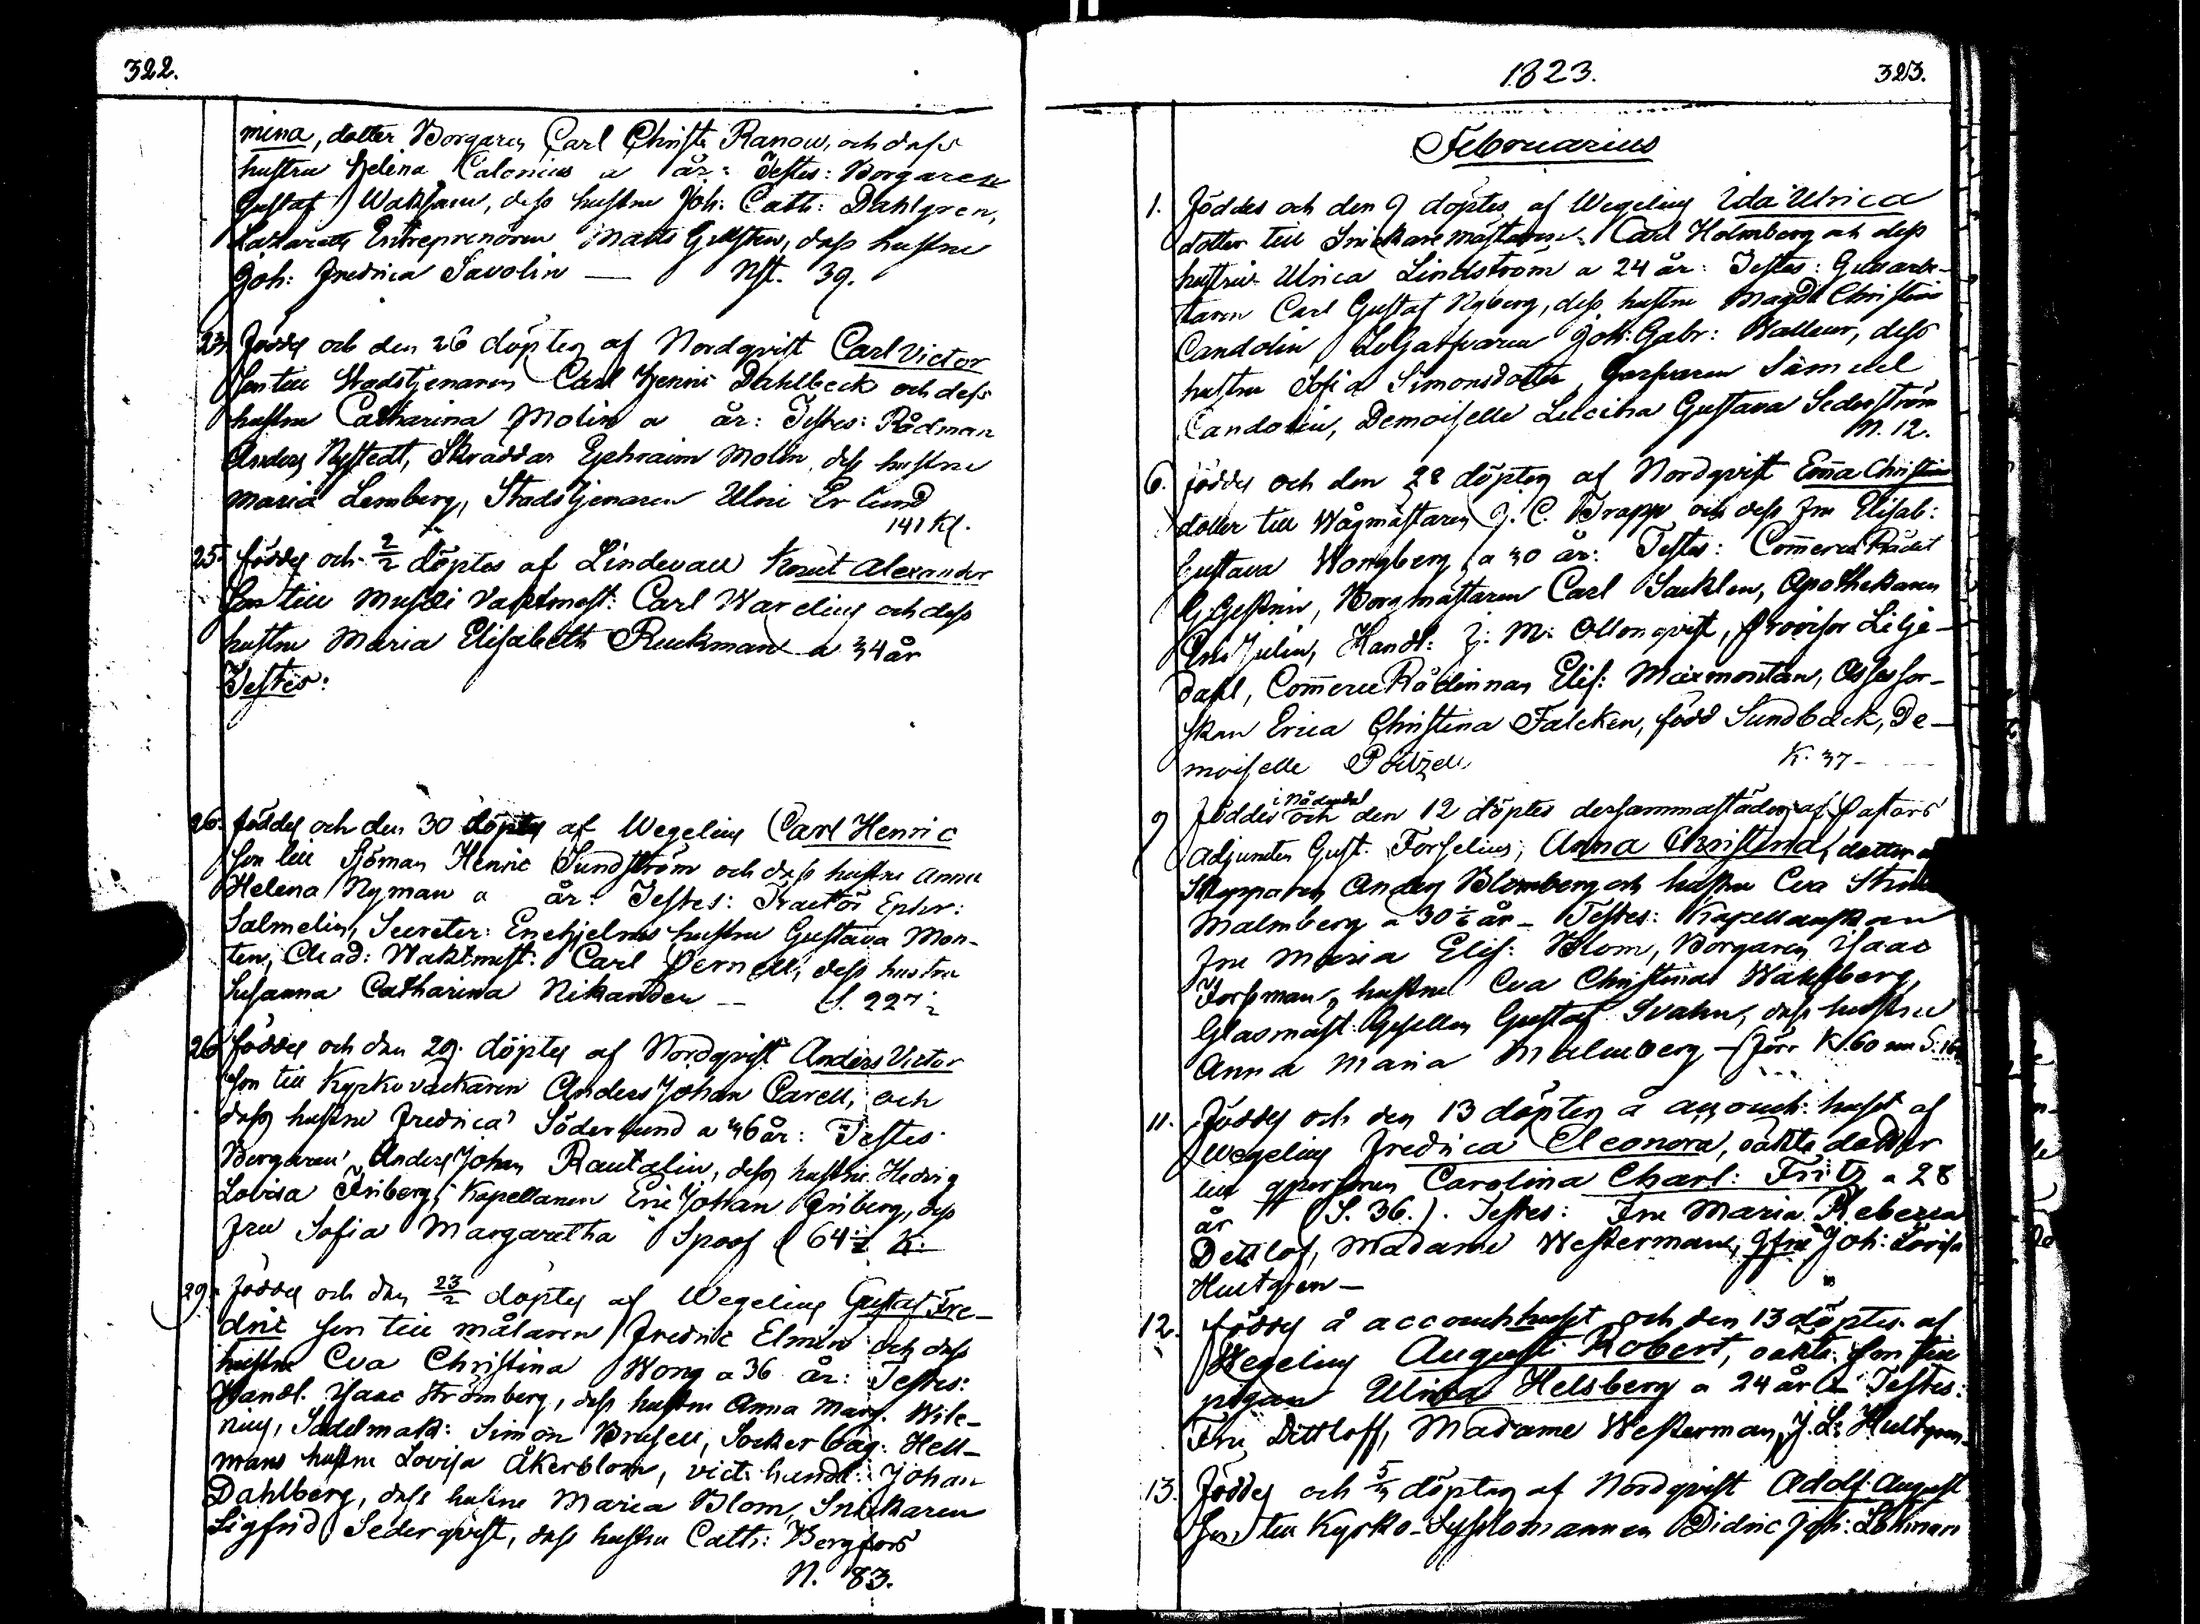 322.
mina, dotter Borgaren Carl Christ: Ranow, och dess
hustru Helena Calonius a år: Testes: Borgaren
Gustaf Waksam, dess hustru Joh. Cath: Dahlgren,
Lazaretts Entreprenören Matts Gillsten, dess hustru
Joh: Fredrica Savolin — Nst. 39.
23. föddes och den 26 döptes af Nordqvist Carl Victor
son till Stadstjenaren Carl Henric Dahlbeck och dess
hustru Catharina Molin a år: Testes: Rådman
Anders Nystedt, Skraddar Ephraim Molin, dess hustru
Maria Lemberg, Stadstjenaren Ulric Erlund
141 Kl.
25. föddes och 2/2 döptes af Lindevall Knut Alexander
son till Musei Vaktmäst: Carl Warelius och dess
hustru Maria Elisabeth Ruckman a 34 år
Testes:
26. föddes och den 30 döptes af Wegelius Carl Henric
son till Sjöman Henric Sundström och dess hustru Anna
Helena Nyman a år: Testes: Tractör Ephr:
Salmelin, Secreter: Enehjelms hustru Gustava Mon-
ten, Acad: Waktmäst: Carl Pernell, dess hustru
Susanna Catharina Nikander — S. 227½
26. föddes och den 29. döptes af Nordqvist Anders Victor
son till Kyrkoväktaren Anders Johan Carell, och
dess hustru Fredrica Söderlund a 36 år: Testes
Borgaren Anders Johan Rautalin, dess hustru Hedvig
Lovisa Friberg, Kapellanen Eric Johan Friberg, dess
Fru Sofia Margaretha Spoof (64½ K.
29. föddes och den 23/2 döptes af Wegelius Gustaf Fre-
dric son till målaren Fredric Elmin och dess
hustru Eva Christina Wong a 36 år: Testes:
Handl. Isaac Strömberg, dess hustru Anna Marg. Wile-
nius, Sadelmak: Simon Brusell, Sockerbag: Hell-
mans hustru Lovisa Åkerblom, vict: handl: Johan
Dahlberg, dess hustru Maria Blom, Snickaren
Sigfrid Sederqvist, dess hustru Cath: Bergfors
N. 83.
1823. 323.
Februarius
1. föddes och den 9 döptes af Wegelius Ida Ulrica
dotter till Snickaremästaren Carl Holmberg och dess
hustru Ulrica Lindström a 24 år: Testes: Gullarbe-
taren Carl Gustaf Nyberg, dess hustru Magd: Christina
Candolin Joh: Gabr: Walleur, dess
hustru Sofia Simonsdotter, Garfvaren Samuel
Candolin, Demoiselle Lucina Gustava Sederström
N. 12.
6. föddes och den 28 döptes af Nordqvist Em̄a Christina
dotter till Wågmästaren J. C. Trapp och dess Fru Elisab:
Gustava Wongberg a 30 år: Testes: Com̄erce Rådet
Borgmästaren Carl Sacklen, Apothekaren
Eric Julin, Handl: J: M: Ollonqvist, Provisor Lilje-
dahl, Com̄erce Rådinnan Elis: Maxmontan, Assessor-
skan Erica Christina Falcken, född Sundback, De-
moiselle Pettzell K. 37—
9 föddes i Nådendal och den 12 döptes dersammastädes af Pastors
Adjuncten Gust. Forselius, Anna Christina, dotter
Skepparen Anders Blomberg och hustru Eva
Malmberg a 30½ år — Testes: Kapellanskan
Fru Maria Elis: Blom, Borgaren Isaac
Forsman, hustru Eva Christina Wahlberg,
Glasmäst: Gesellen Gustaf Svahn, dess hustru
Anna Maria Malmberg — (förr K. 60 nu S.
11. föddes och den 13 döptes å accouch: huset af
Wegelius Fredrica Eleonora, oäkta dotter
till qpersonen Carolina Charl: Fritz a 28
år (S. 36.). Testes: Fru Maria Rebecca
Dettlof, Madame Westerman, Jfru Joh: Lovisa
Hultgren —
12. föddes å accouchhuset och den 13 döptes af
Wegelius August Robert, oäkta son till
pigan Ulrica Helsberg a 24 år — Testes:
Fru Dittloff, Madame Westerman, J. L: Hultgren
13. föddes och 5/3 döptes af Nordqvist Adolf August
son till Kyrko-Sysslomannen Didric Joh: Lohman